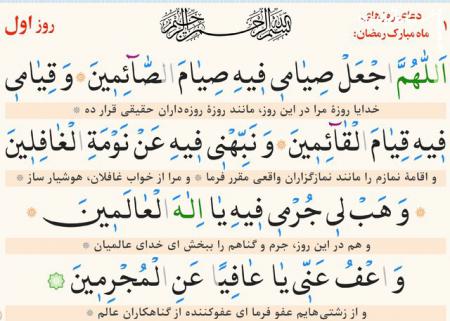 دعای روزهای
ماه مبارک رمضان:
۱
بسم الله الرحمن الرحیم
روز اول
اَللّٰهُمَّ اجْعَلْ صِيٰامى فيهِ صِيٰامَ الصّٰٓائِمينَ * وَ قِيٰامى
خدایا روزهٔ مرا در این روز، مانند روزهٔ روزه‌داران حقیقی قرار ده *
فيهِ قِيٰامَ الْقٰٓائِمينَ * وَ نَبِّهْنى فيهِ عَنْ نَوْمَةِ الْغٰافِلينَ
و اقامهٔ نمازم را مانند نمازگزاران واقعی مقرر فرما * و مرا از خواب غافلان، هوشیار ساز *
* وَ هَبْ لى جُرْمى فيهِ يٰا اِلٰهَ الْعٰالَمينَ *
و هم در این روز، جرم و گناهم را ببخش ای خدای عالمیان *
وَ اعْفُ عَنّى يٰا عٰافِيًا عَنِ الْمُجْرِمينَ
و از زشتی‌هایم عفو فرما ای عفوکننده از گناهکاران عالم *